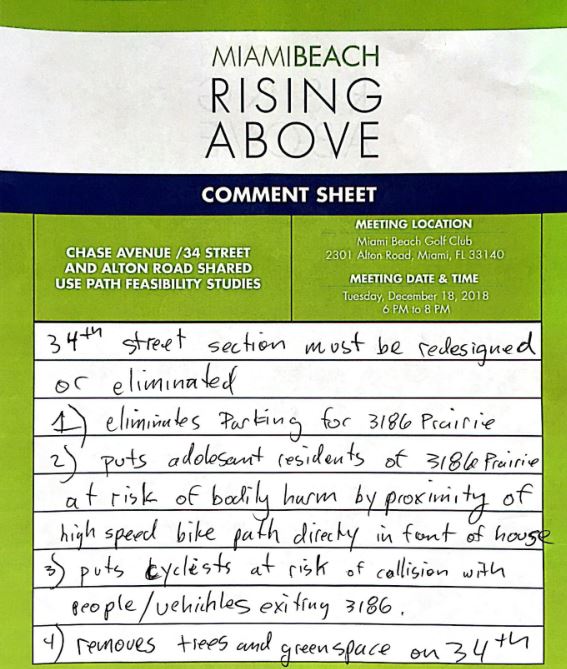 MIAMIBEACH
RISING
ABOVE
COMMENT SHEET
CHASE AVENUE /34 STREET
AND ALTON ROAD SHARED
USE PATH FEASIBILITY STUDIES
MEETING LOCATION
Miami Beach Golf Club
2301 Alton Road, Miami, FL 33140
MEETING DATE & TIME
Tuesday, December 18, 2018
6 PM to 8 PM
34th street section must be redesigned
or eliminated
1) eliminates Parking for 3186 Prairie
2) puts adolesant residents of 3186 Prairie
at risk of bodily harm by proximity of
high speed bike path directy in font of house
3) puts cyclests at risk of collision with
people/vehichles exiting 3186.
4) removes trees and greenspace on 34th